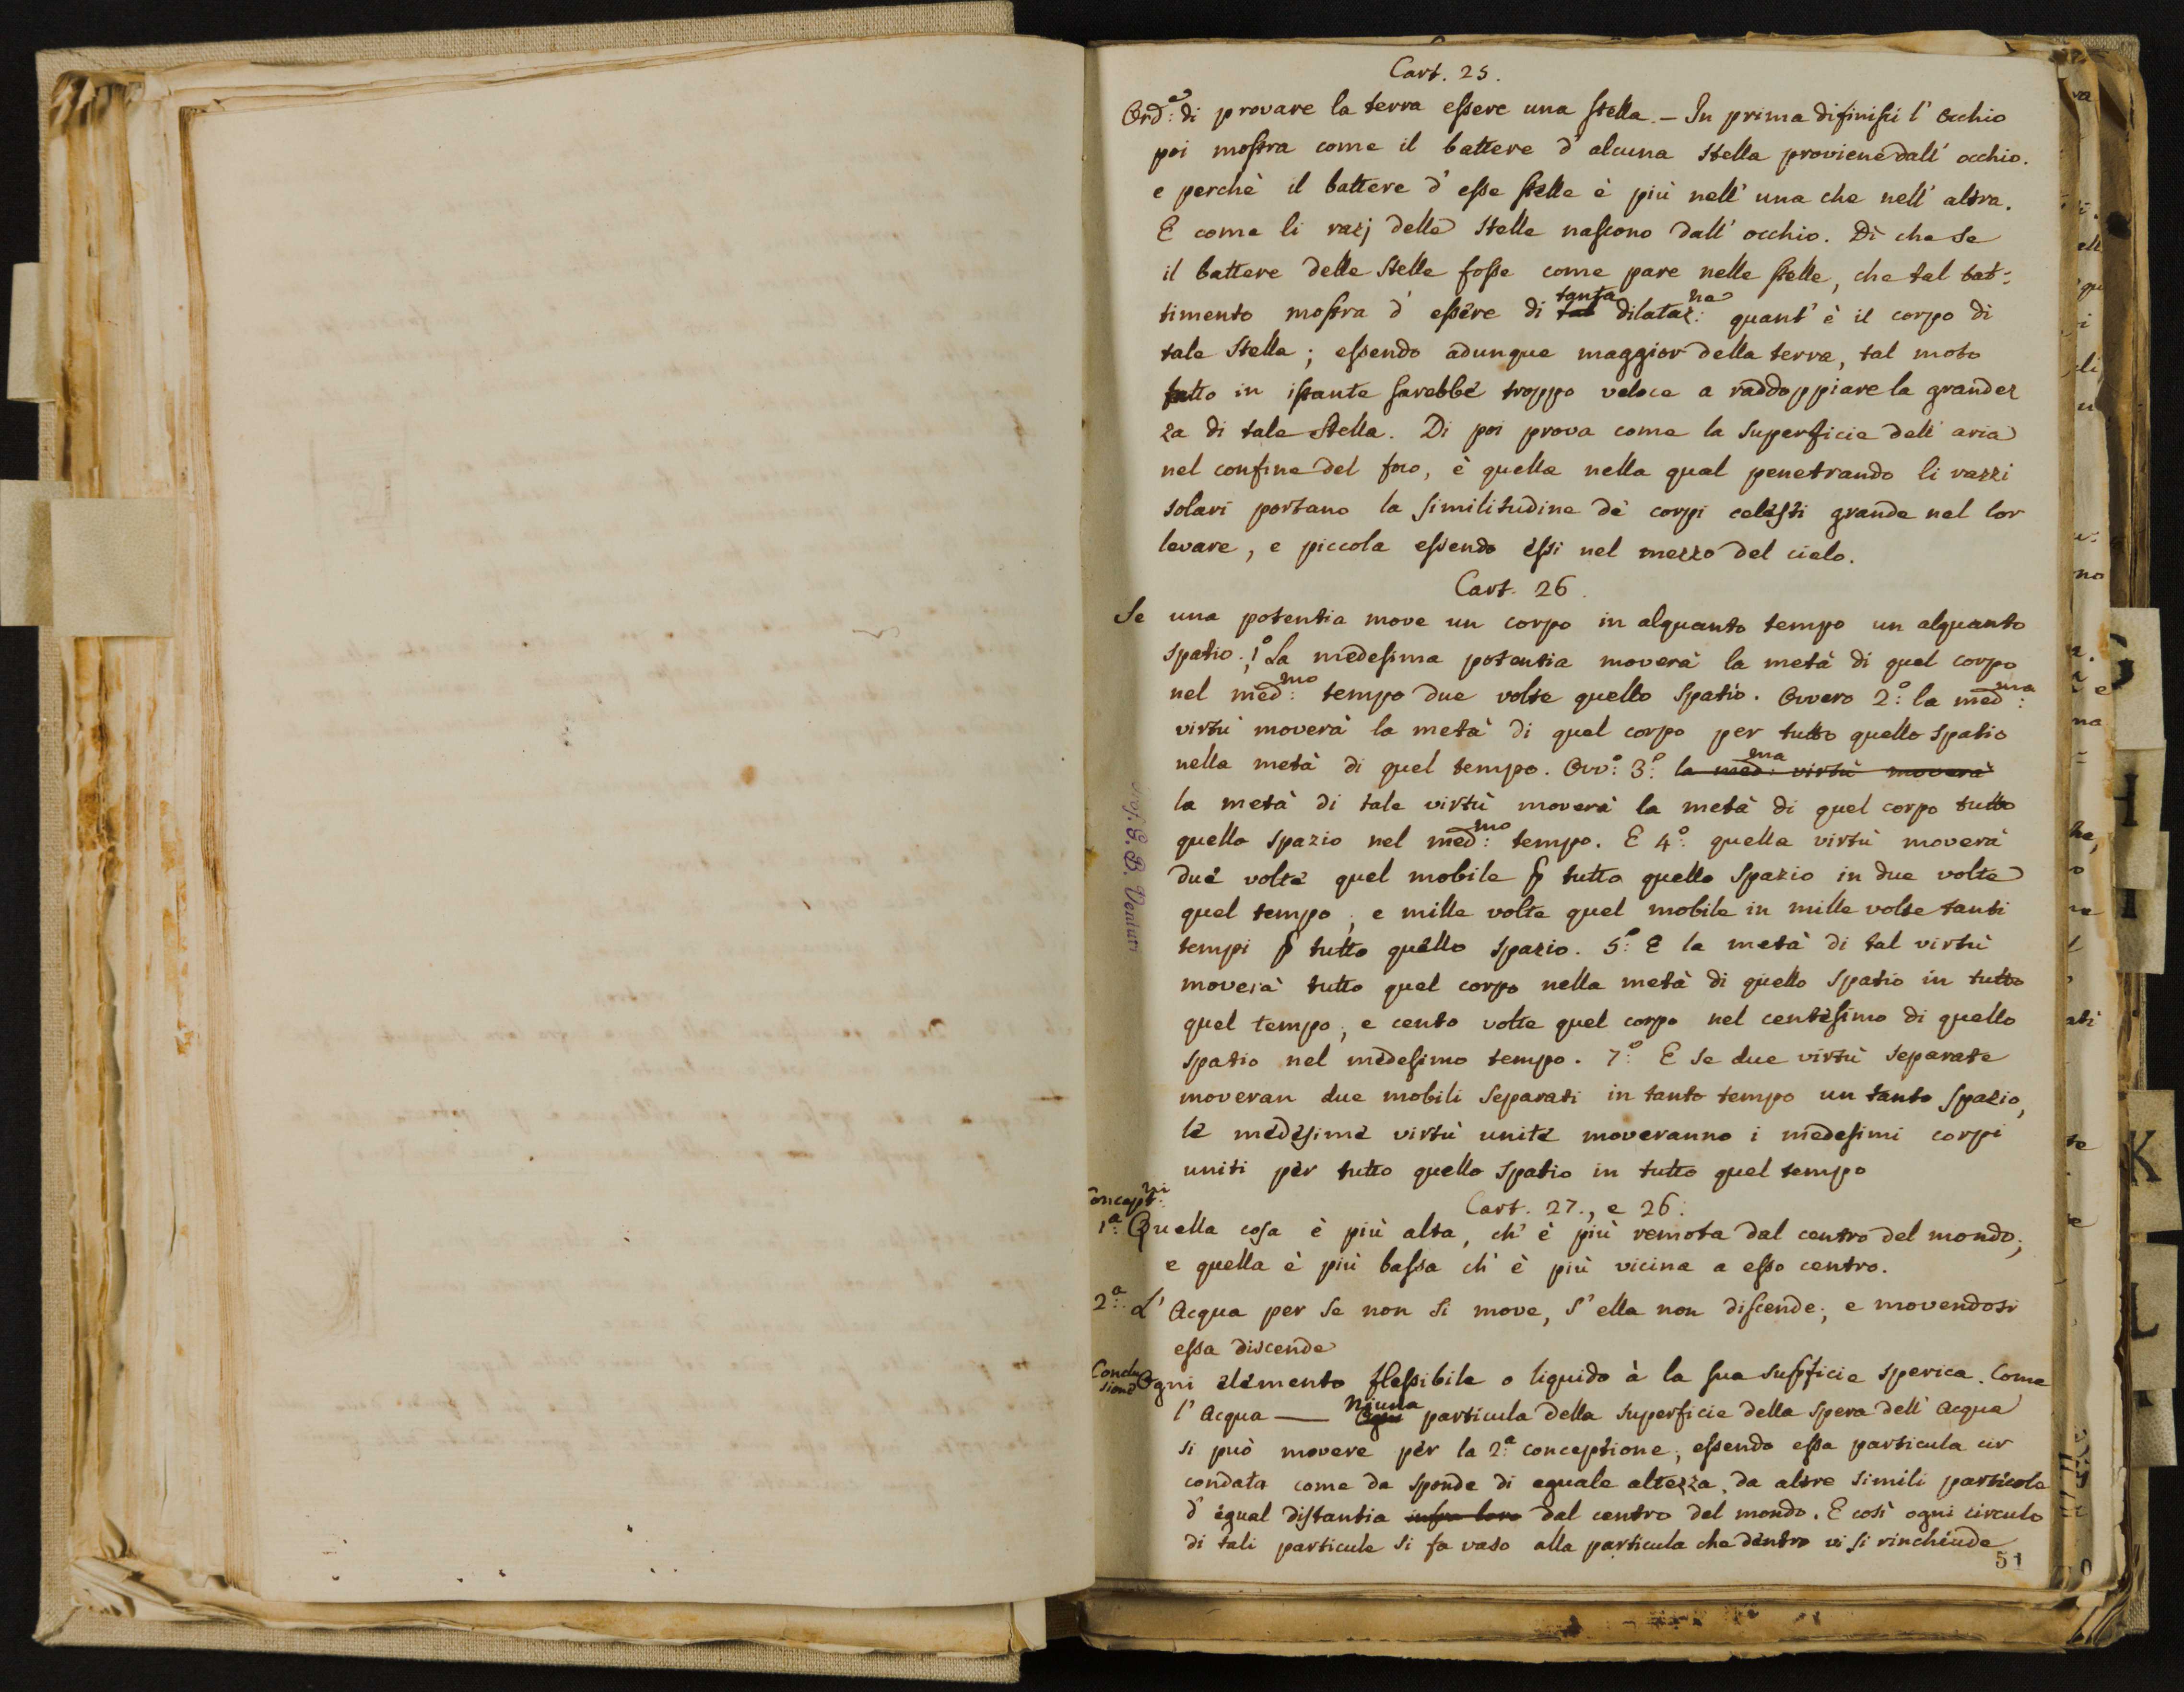 Cart. 25.
Ord:e di provare la terra essere una stella. — In prima difinisci l' occhio
poi mostra come il battere d' alcuna stella proviene dall' occhio.
e perchè il battere d' esse stelle è più nell' una che nell' altra.
E come li razj delle stelle nascono dall' occhio. Dì che se
il battere delle stelle fosse come pare nelle stelle, che tal bat=
timento mostra d' essere di tanta dilataz:ne quant' è il corpo di
tale stella; essendo adunque maggior della terra, tal moto
fatto in istante sarebbe troppo veloce a raddoppiare la grandez
za di tale stella. Di poi prova come la superficie dell' aria
nel confine del foco, è quella nella qual penetrando li razzi
solari portano la similitudine de' corpi celesti grande nel lor
levare, e piccola essendo essi nel mezzo del cielo.
Cart. 26.
Se una potentia move un corpo in alquanto tempo un alquanto
spatio. 1.o La medesima potentia moverà la metà di quel corpo
nel med:mo tempo due volte quello spatio. Ovvero 2:o la med:ma
virtù moverà la metà di quel corpo per tutto quello spatio
nella metà di quel tempo. Ovv:o 3:o la med:ma virtù moverà
la metà di tale virtù moverà la metà di quel corpo tutto
quello spazio nel med:mo tempo. E 4:o quella virtù moverà
due volte quel mobile ꝑ tutto quello spazio in due volte
quel tempo; e mille volte quel mobile in mille volte tanti
tempi ꝑ tutto quello spazio. 5:o E la metà di tal virtù
moverà tutto quel corpo nella metà di quello spatio in tutto
quel tempo; e cento volte quel corpo nel centesimo di quello
spatio nel medesimo tempo. 7:o E se due virtù separate
moveran due mobili separati in tanto tempo un tanto spazio,
le medesime virtù unite moveranno i medesimi corpi
uniti per tutto quello spatio in tutto quel tempo
Cart. 27., e 26.
1:a Quella cosa è più alta, ch' è più remota dal centro del mondo;
e quella è più bassa ch' è più vicina a esso centro.
2:a L' Acqua per se non si move, s' ella non discende; e movendosi
essa discende
Conclu
sione Ogni elemento flessibile o liquido à la sua supficie sperica. Come
l' Acqua — Niuna particula della superficie della spera dell' Acqua
si può movere per la 2:a conceptione; essendo essa particula cir
condata come da sponde di eguale altezza, da altre simili particole
d' egual distantia infra loro dal centro del mondo. E così ogni circulo
di tali particule si fa vaso alla particula che dentro vi si rinchiude
51
G. B. Venturi
K
L